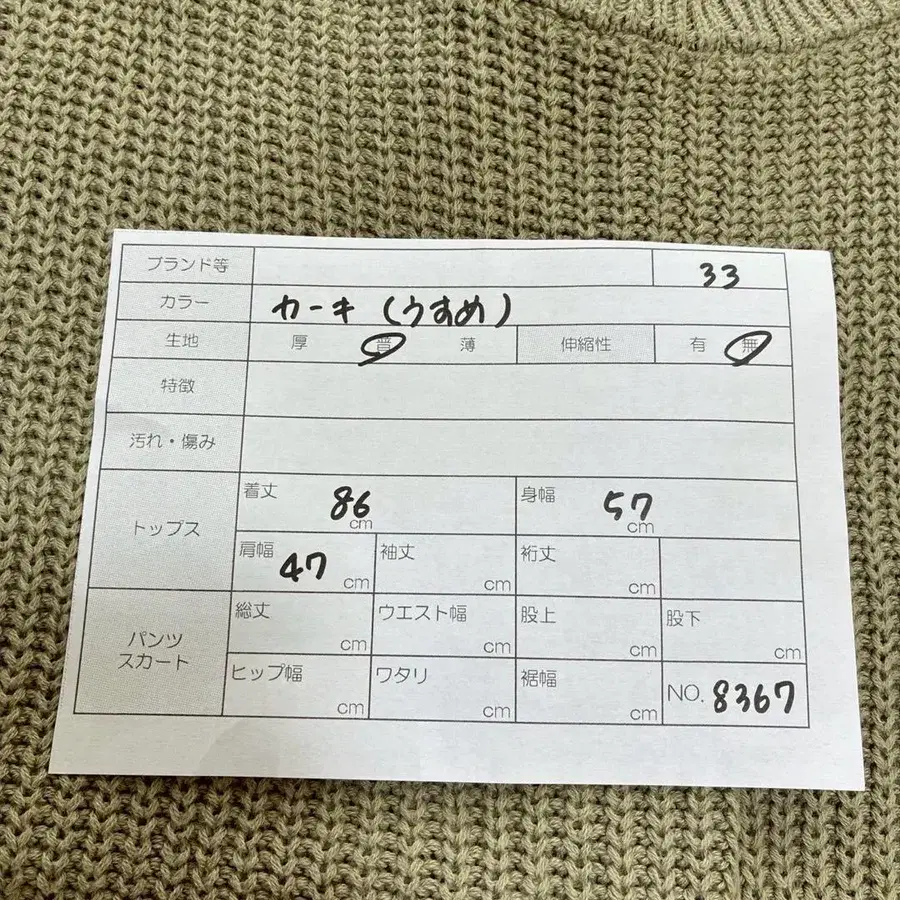 ブランド等 33
カラー カーキ (うすめ)
生地 厚 普 薄 伸縮性 有 無
特徴
汚れ・傷み
トップス 着丈 86 cm 身幅 57 cm
肩幅 47 cm 袖丈 cm 裄丈 cm
パンツ スカート 総丈 cm ウエスト幅 cm 股上 cm 股下 cm
ヒップ幅 cm ワタリ cm 裾幅 cm NO. 8367